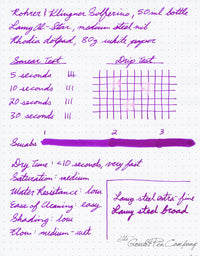 Rohrer & Klingner Solferino, 50ml bottle
Lamy Al-Star, medium steel nib
Rhodia dotpad, 80g white paper
Smear Test
Drip Test
5 seconds
10 seconds
20 seconds
30 seconds
1 2 3
Swabs
Dry Time: <10 seconds, very fast
Saturation: medium
Water Resistance: low
Ease of Cleaning: easy
Shading: low
Flow: medium-wet
Lamy steel extra-fine
Lamy steel broad
the Goulet Pen Company